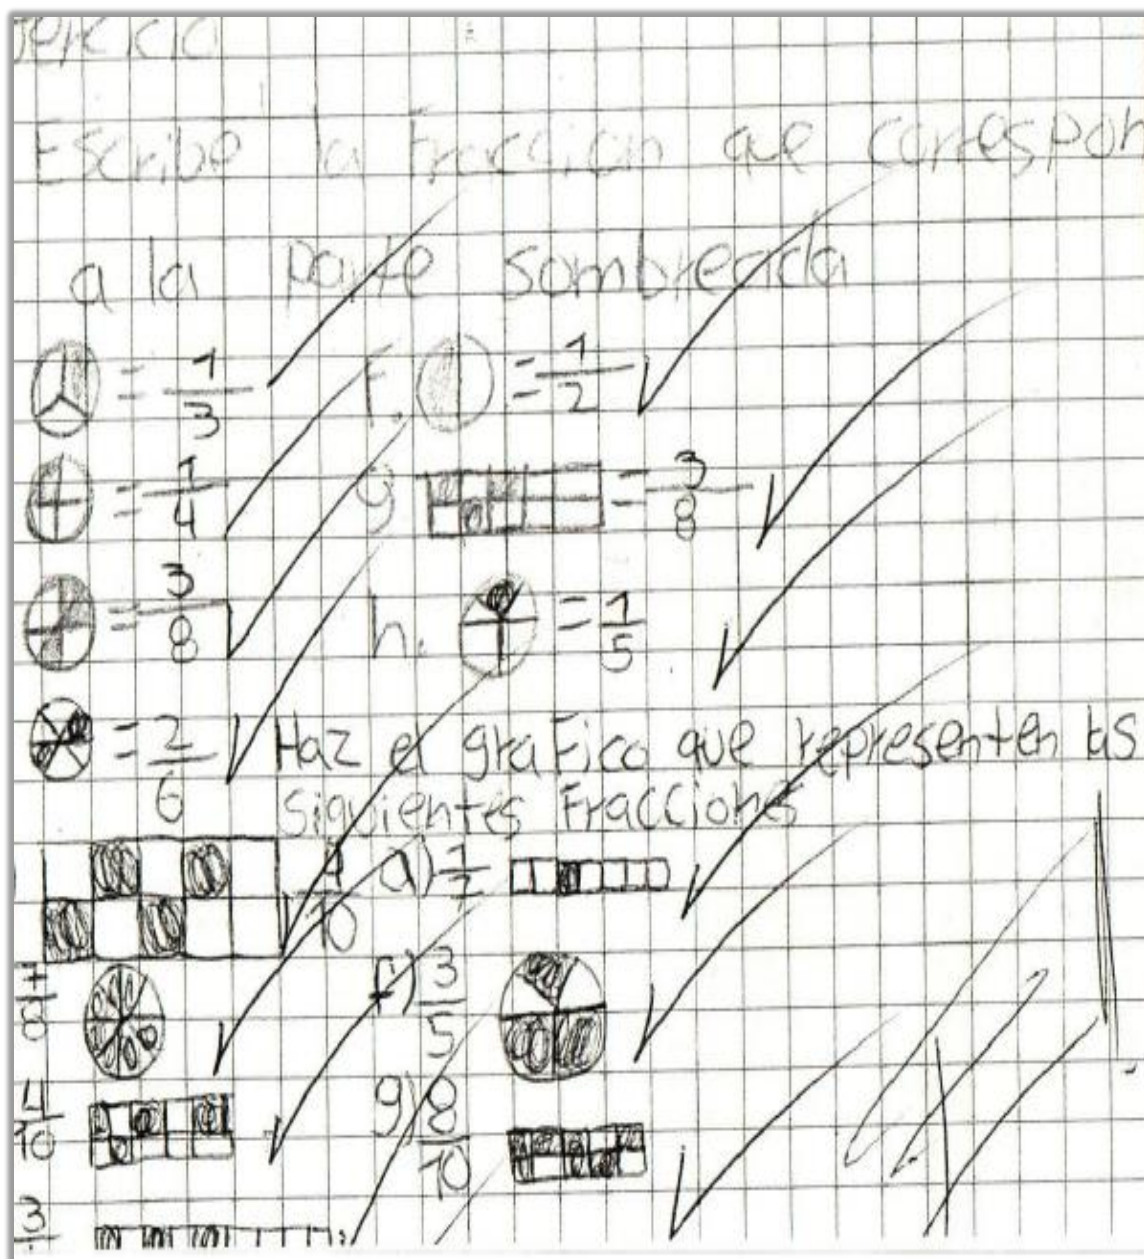 Escribe la fracción que correspon
a la parte sombreada
= 1/3
f. = 1/2
= 1/4
g = 3/8
= 3/8
h. = 1/5
= 2/6
Haz el grafico que representen las
siguientes Fracciones
4/10
a)
f) 3/5
4/10
g) 8/10
3